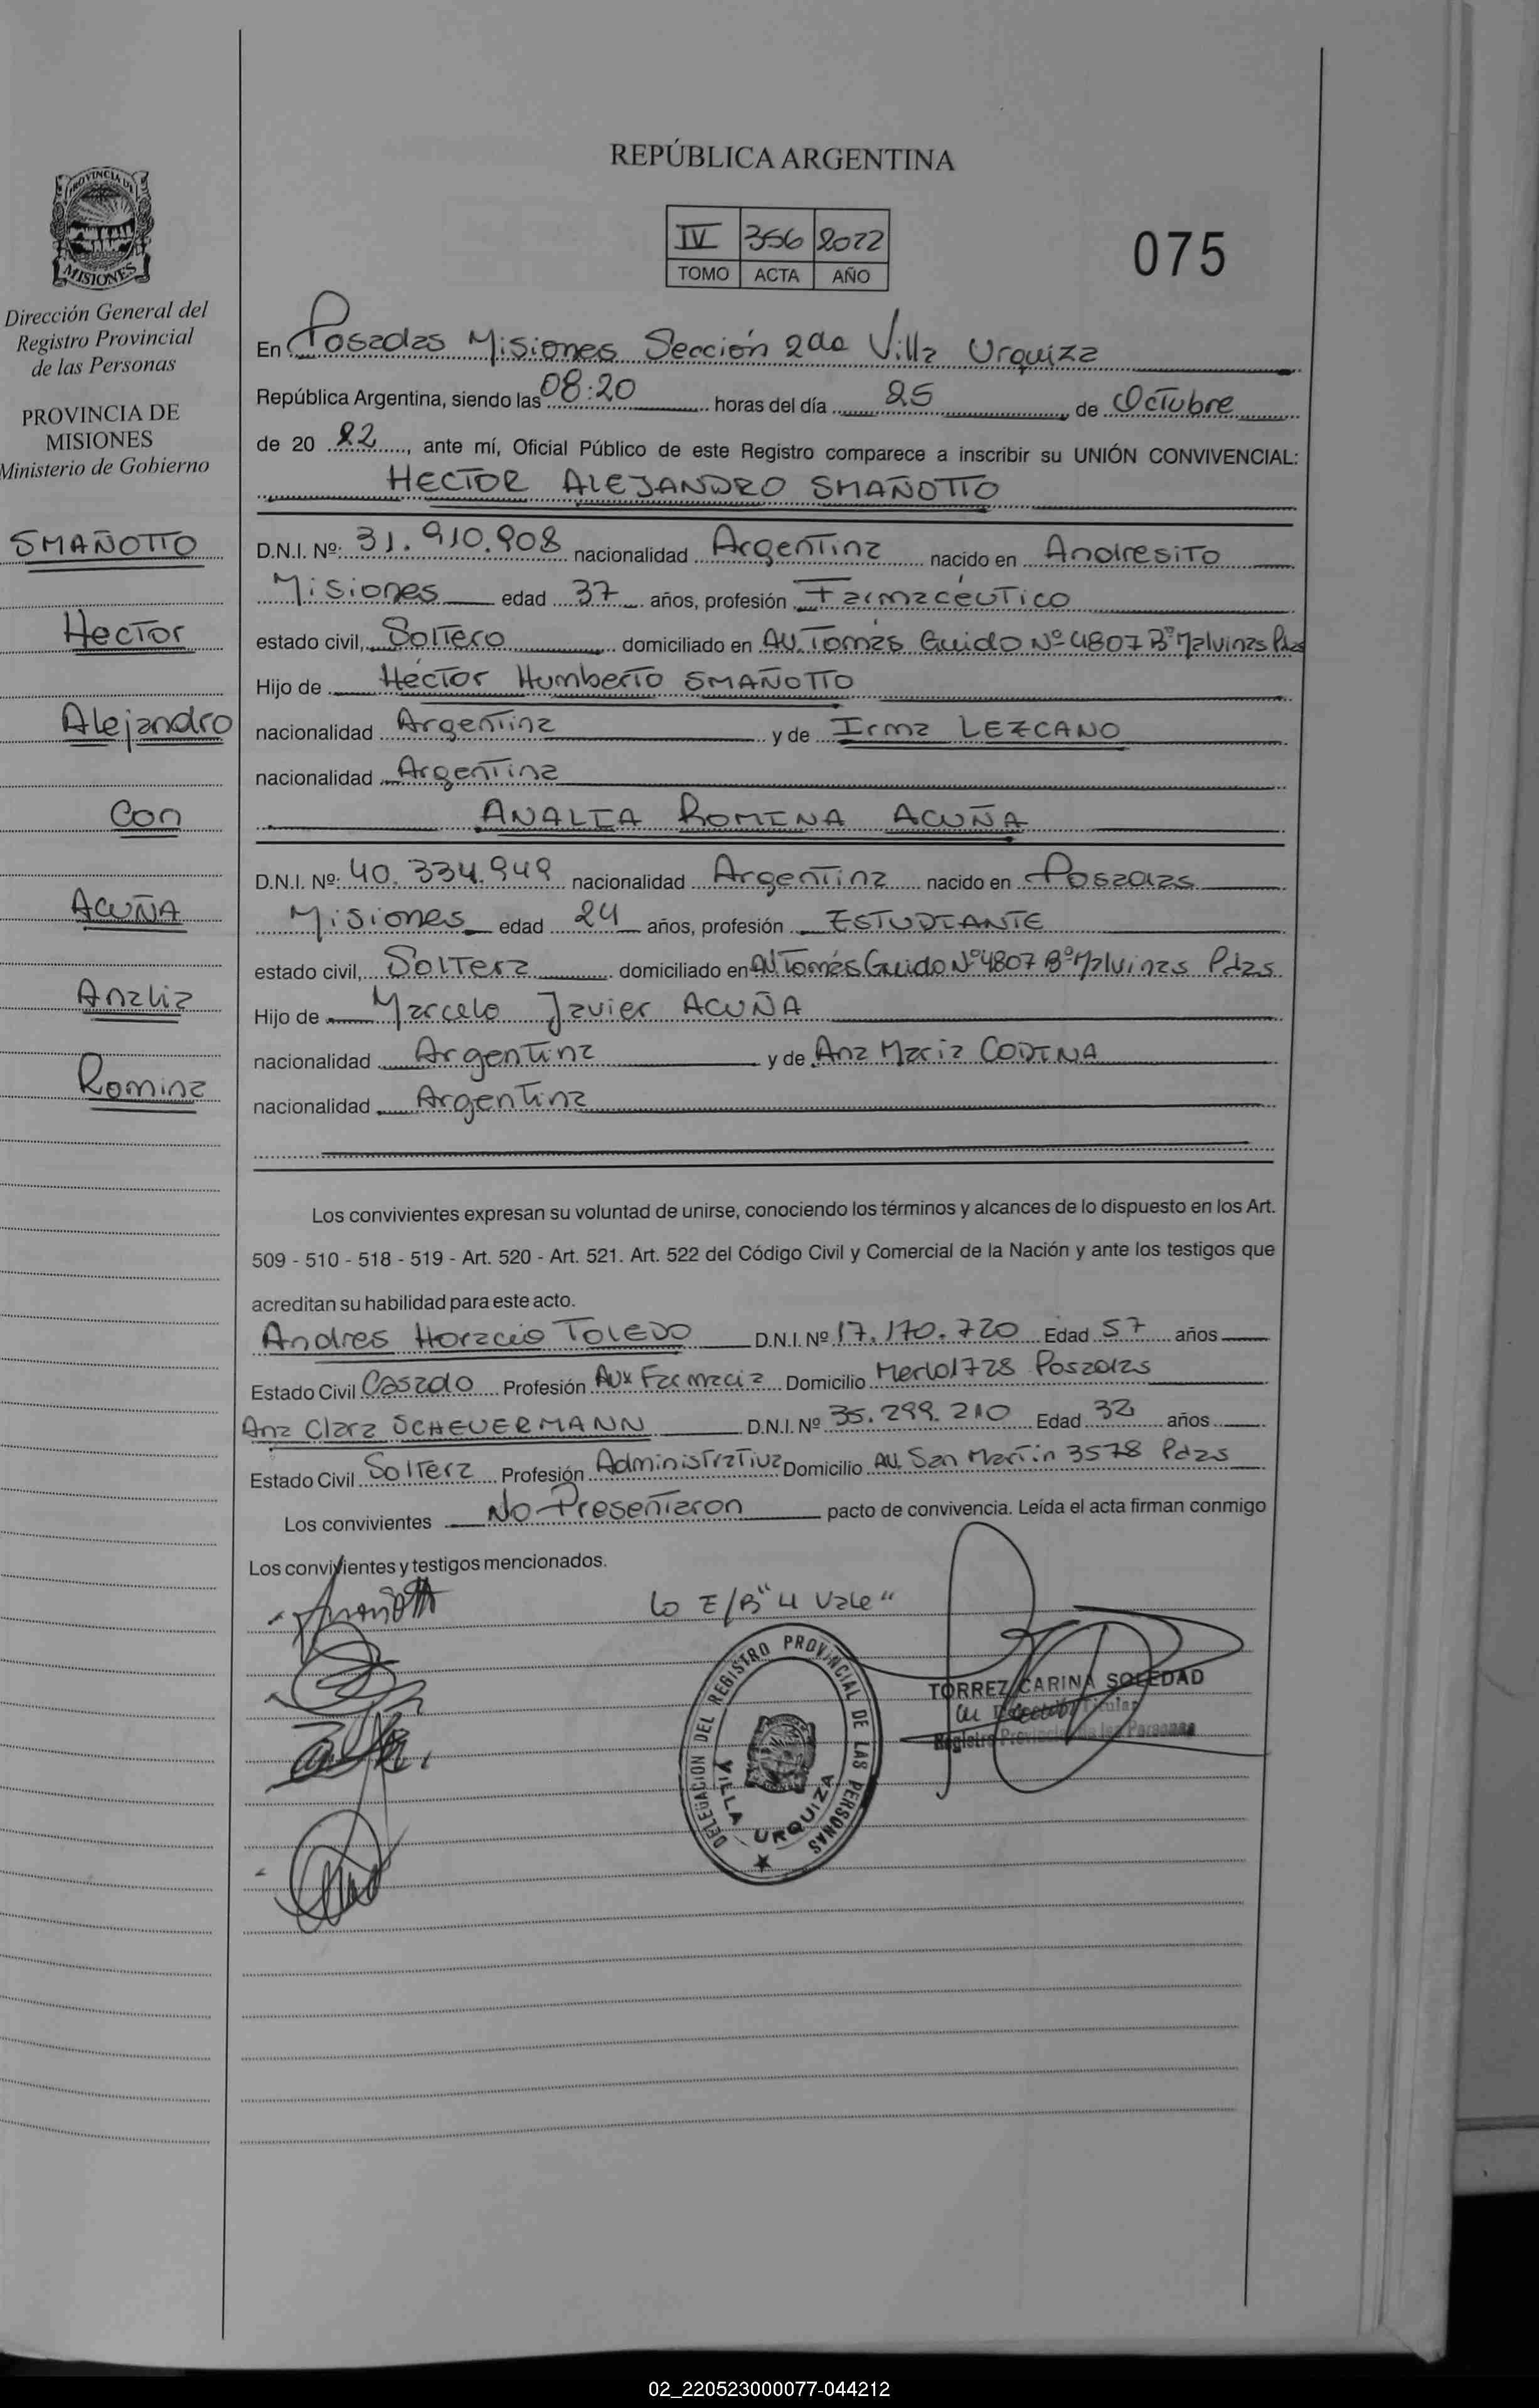 REPÚBLICA ARGENTINA
IV 356 2022
TOMO ACTA AÑO
075
PROVINCIA DE
MISIONES
Dirección General del
Registro Provincial
de las Personas
PROVINCIA DE
MISIONES
Ministerio de Gobierno
SMAÑOTTO
Hector
Alejandro
Con
ACUÑA
Analia
Romina
En Posadas Misiones Sección 2da Villa Urquiza
República Argentina, siendo las 08:20 horas del día 25 de Octubre
de 20 22, ante mí, Oficial Público de este Registro comparece a inscribir su UNIÓN CONVIVENCIAL:
HECTOR ALEJANDRO SMAÑOTTO
D.N.I. Nº: 31.910.908 nacionalidad Argentina nacido en Andresito
Misiones edad 37 años, profesión Farmacéutico
estado civil, Soltero domiciliado en AV. Tomás Guido Nº 4807 Bº Malvinas Pdas
Hijo de Héctor Humberto SMAÑOTTO
nacionalidad Argentina y de Irma LEZCANO
nacionalidad Argentina
ANALIA ROMINA ACUÑA
D.N.I. Nº: 40.334.949 nacionalidad Argentina nacido en Posadas
Misiones edad 24 años, profesión ESTUDIANTE
estado civil, Soltera domiciliado en AV Tomás Guido Nº 4807 Bº Malvinas Pdas
Hijo de Marcelo Javier ACUÑA
nacionalidad Argentina y de Ana Maria CODINA
nacionalidad Argentina
Los convivientes expresan su voluntad de unirse, conociendo los términos y alcances de lo dispuesto en los Art.
509 - 510 - 518 - 519 - Art. 520 - Art. 521. Art. 522 del Código Civil y Comercial de la Nación y ante los testigos que
acreditan su habilidad para este acto.
Andres Horacio TOLEDO D.N.I. Nº 17.170.720 Edad 57 años
Estado Civil Casado Profesión Aux Farmacia Domicilio Merlo 1728 Posadas
Ana Clara SCHEUERMANN D.N.I. Nº 35.299.210 Edad 32 años
Estado Civil Soltera Profesión Administrativa Domicilio AV. San Martín 3578 Pdas
Los convivientes No Presentaron pacto de convivencia. Leída el acta firman conmigo
Los convivientes y testigos mencionados.
Lo E/B "4 Vale"
DELEGACION DEL REGISTRO PROVINCIAL DE LAS PERSONAS
VILLA URQUIZA
TORREZ CARINA SOLEDAD
Titular
Registro Provincial de las Personas
02_220523000077-044212